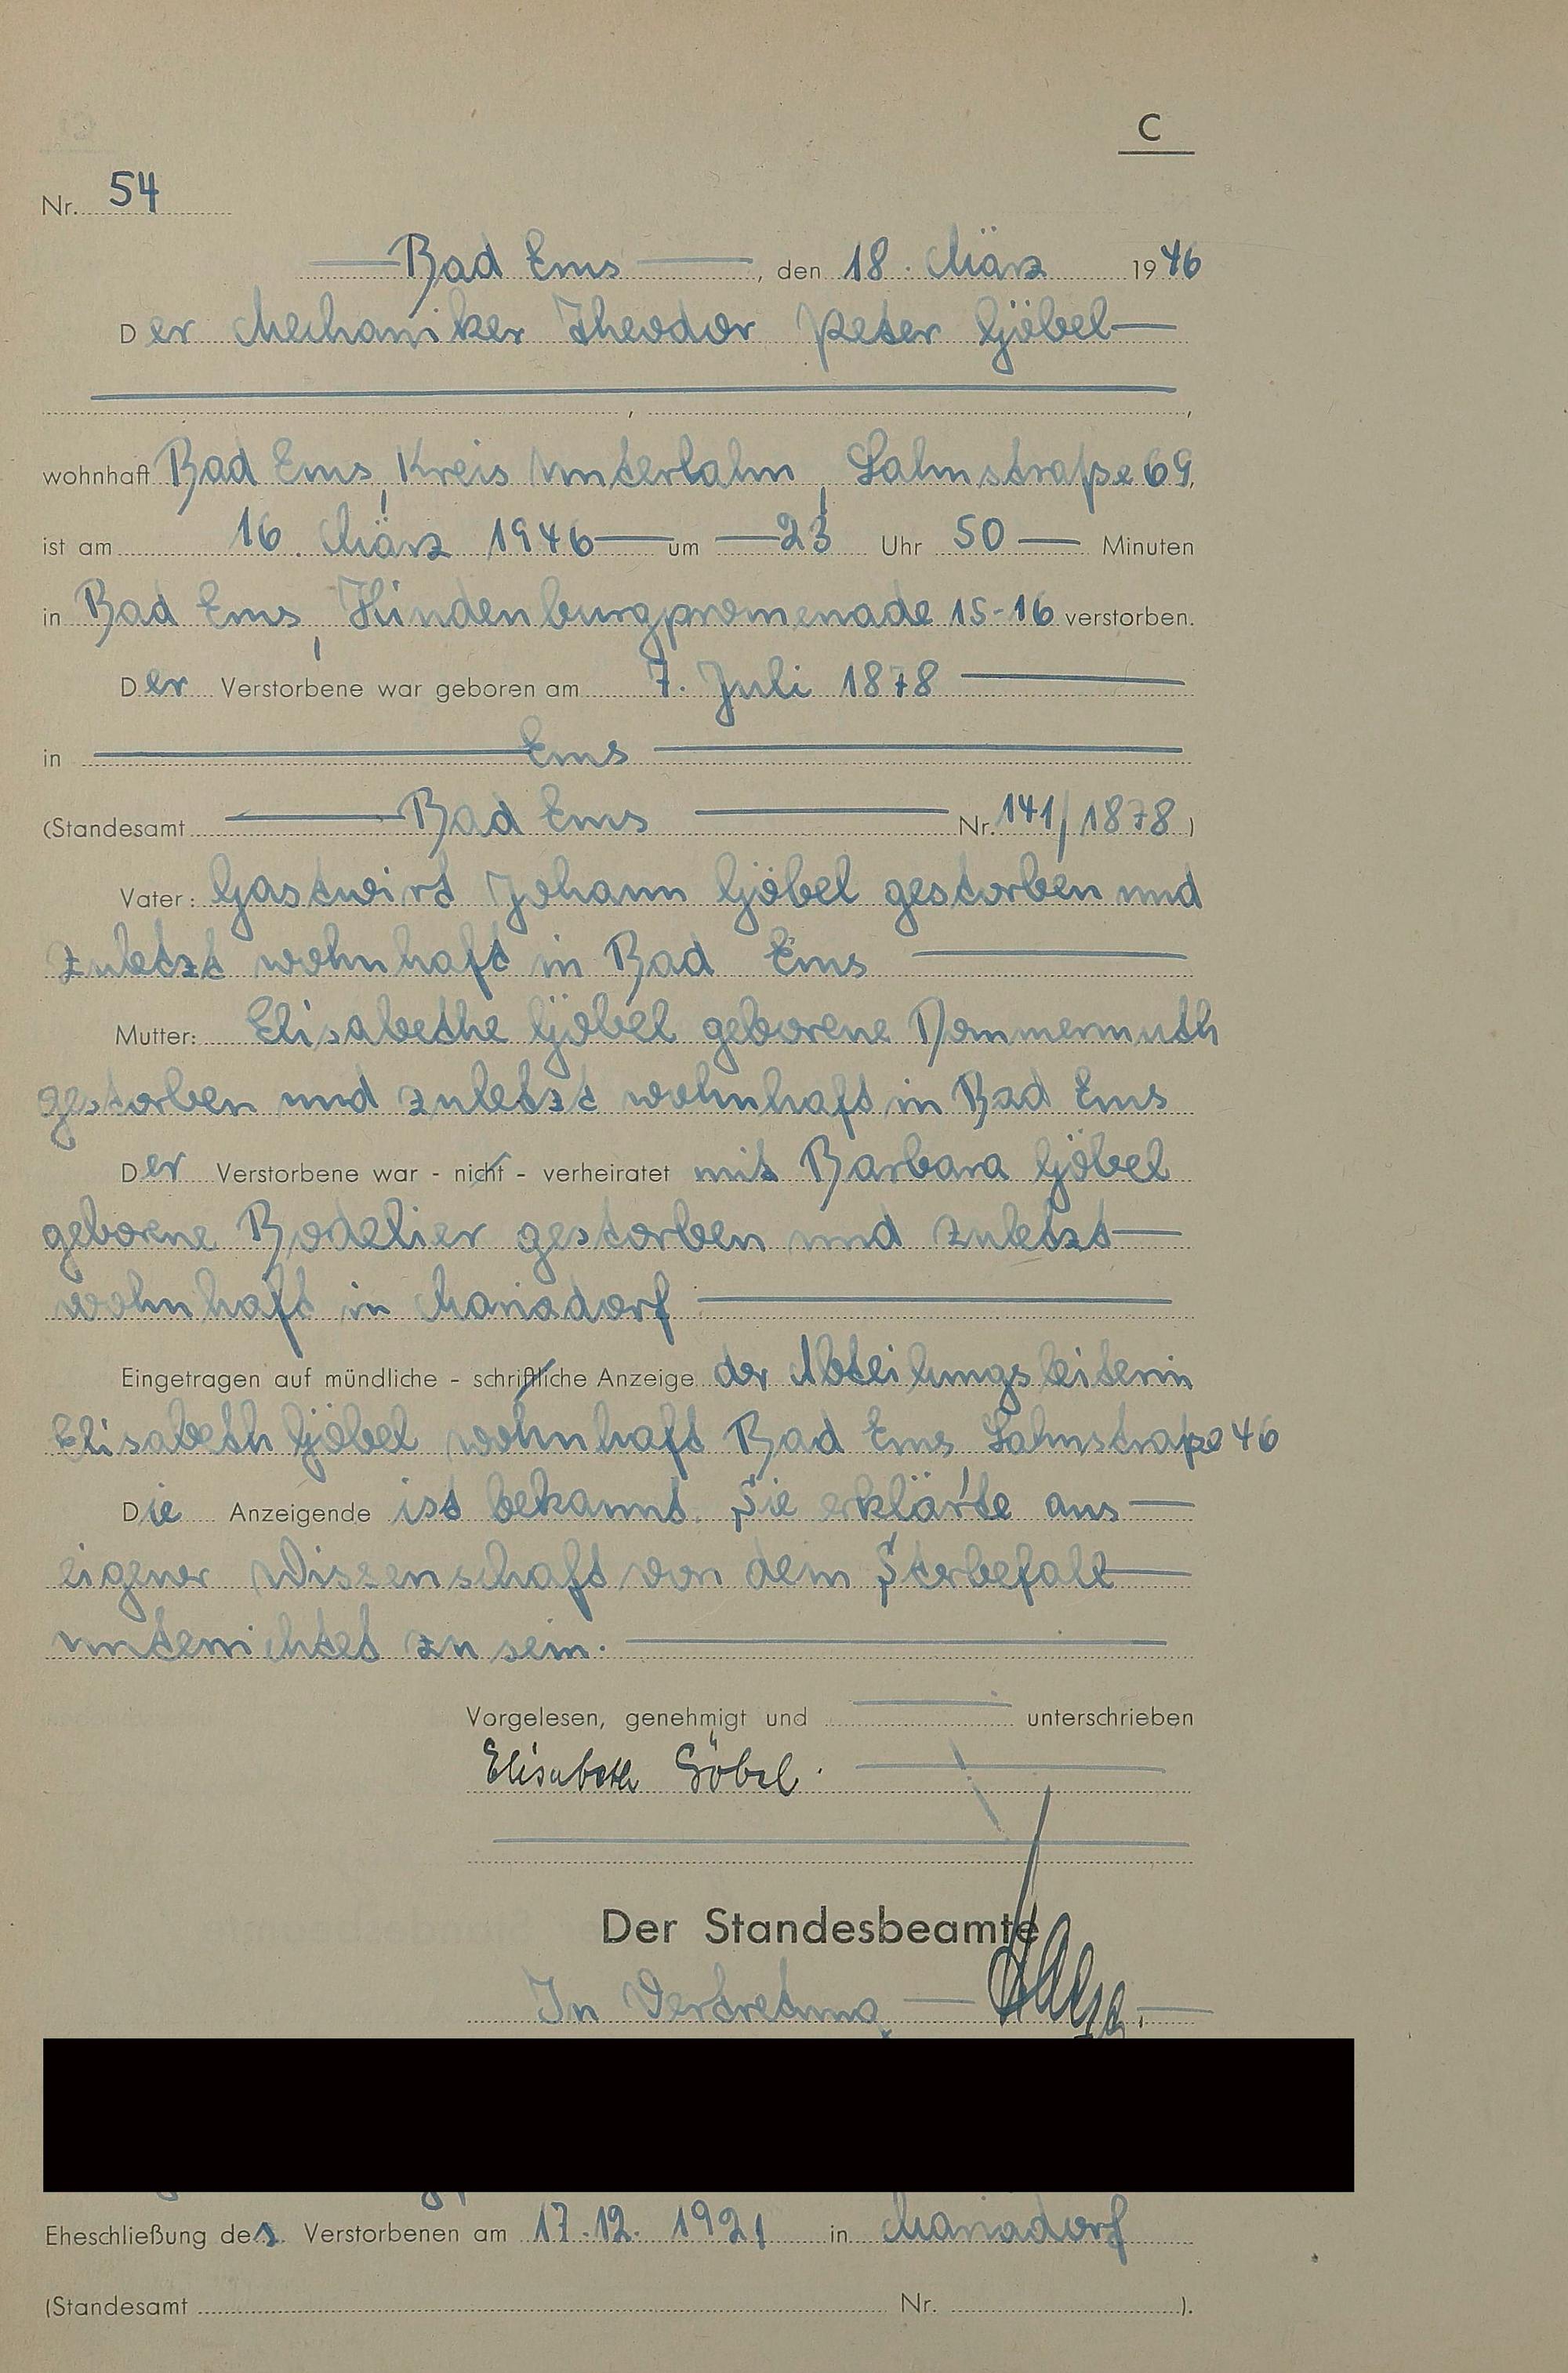 C
Nr. 54
Bad Ems, den 18. März 1946
Der Mechaniker Theodor Peter Göbel
wohnhaft Bad Ems, Kreis Unterlahn, Lahnstraße 69,
ist am 16. März 1946 um 23 Uhr 50 Minuten
in Bad Ems, Hindenburgpromenade 15-16 verstorben.
Der Verstorbene war geboren am 7. Juli 1878
in Ems
(Standesamt Bad Ems Nr. 141/1878)
Vater: Gastwirt Johann Göbel gestorben und
zuletzt wohnhaft in Bad Ems
Mutter: Elisabethe Göbel geborene Dommermuth
gestorben und zuletzt wohnhaft in Bad Ems
Der Verstorbene war - nicht - verheiratet mit Barbara Göbel
geborne Bodelier gestorben und zuletzt
wohnhaft in Mariadorf
Eingetragen auf mündliche - schriftliche Anzeige der Abteilungsleiterin
Elisabeth Göbel wohnhaft Bad Ems Lahnstraße 46
Die Anzeigende ist bekannt. Sie erklärte aus
eigener Wissenschaft von dem Sterbefall
unterrichtet zu sein.
Vorgelesen, genehmigt und unterschrieben
Elisabeth Göbel.
Der Standesbeamte
In Vertretung
Eheschließung des Verstorbenen am 17.12. 1921 in Mariadorf
(Standesamt Nr. ).